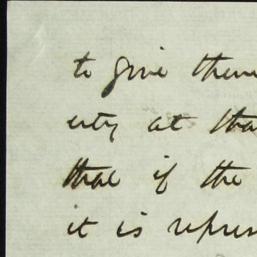 to give them
city at tha
that if the
it is repres